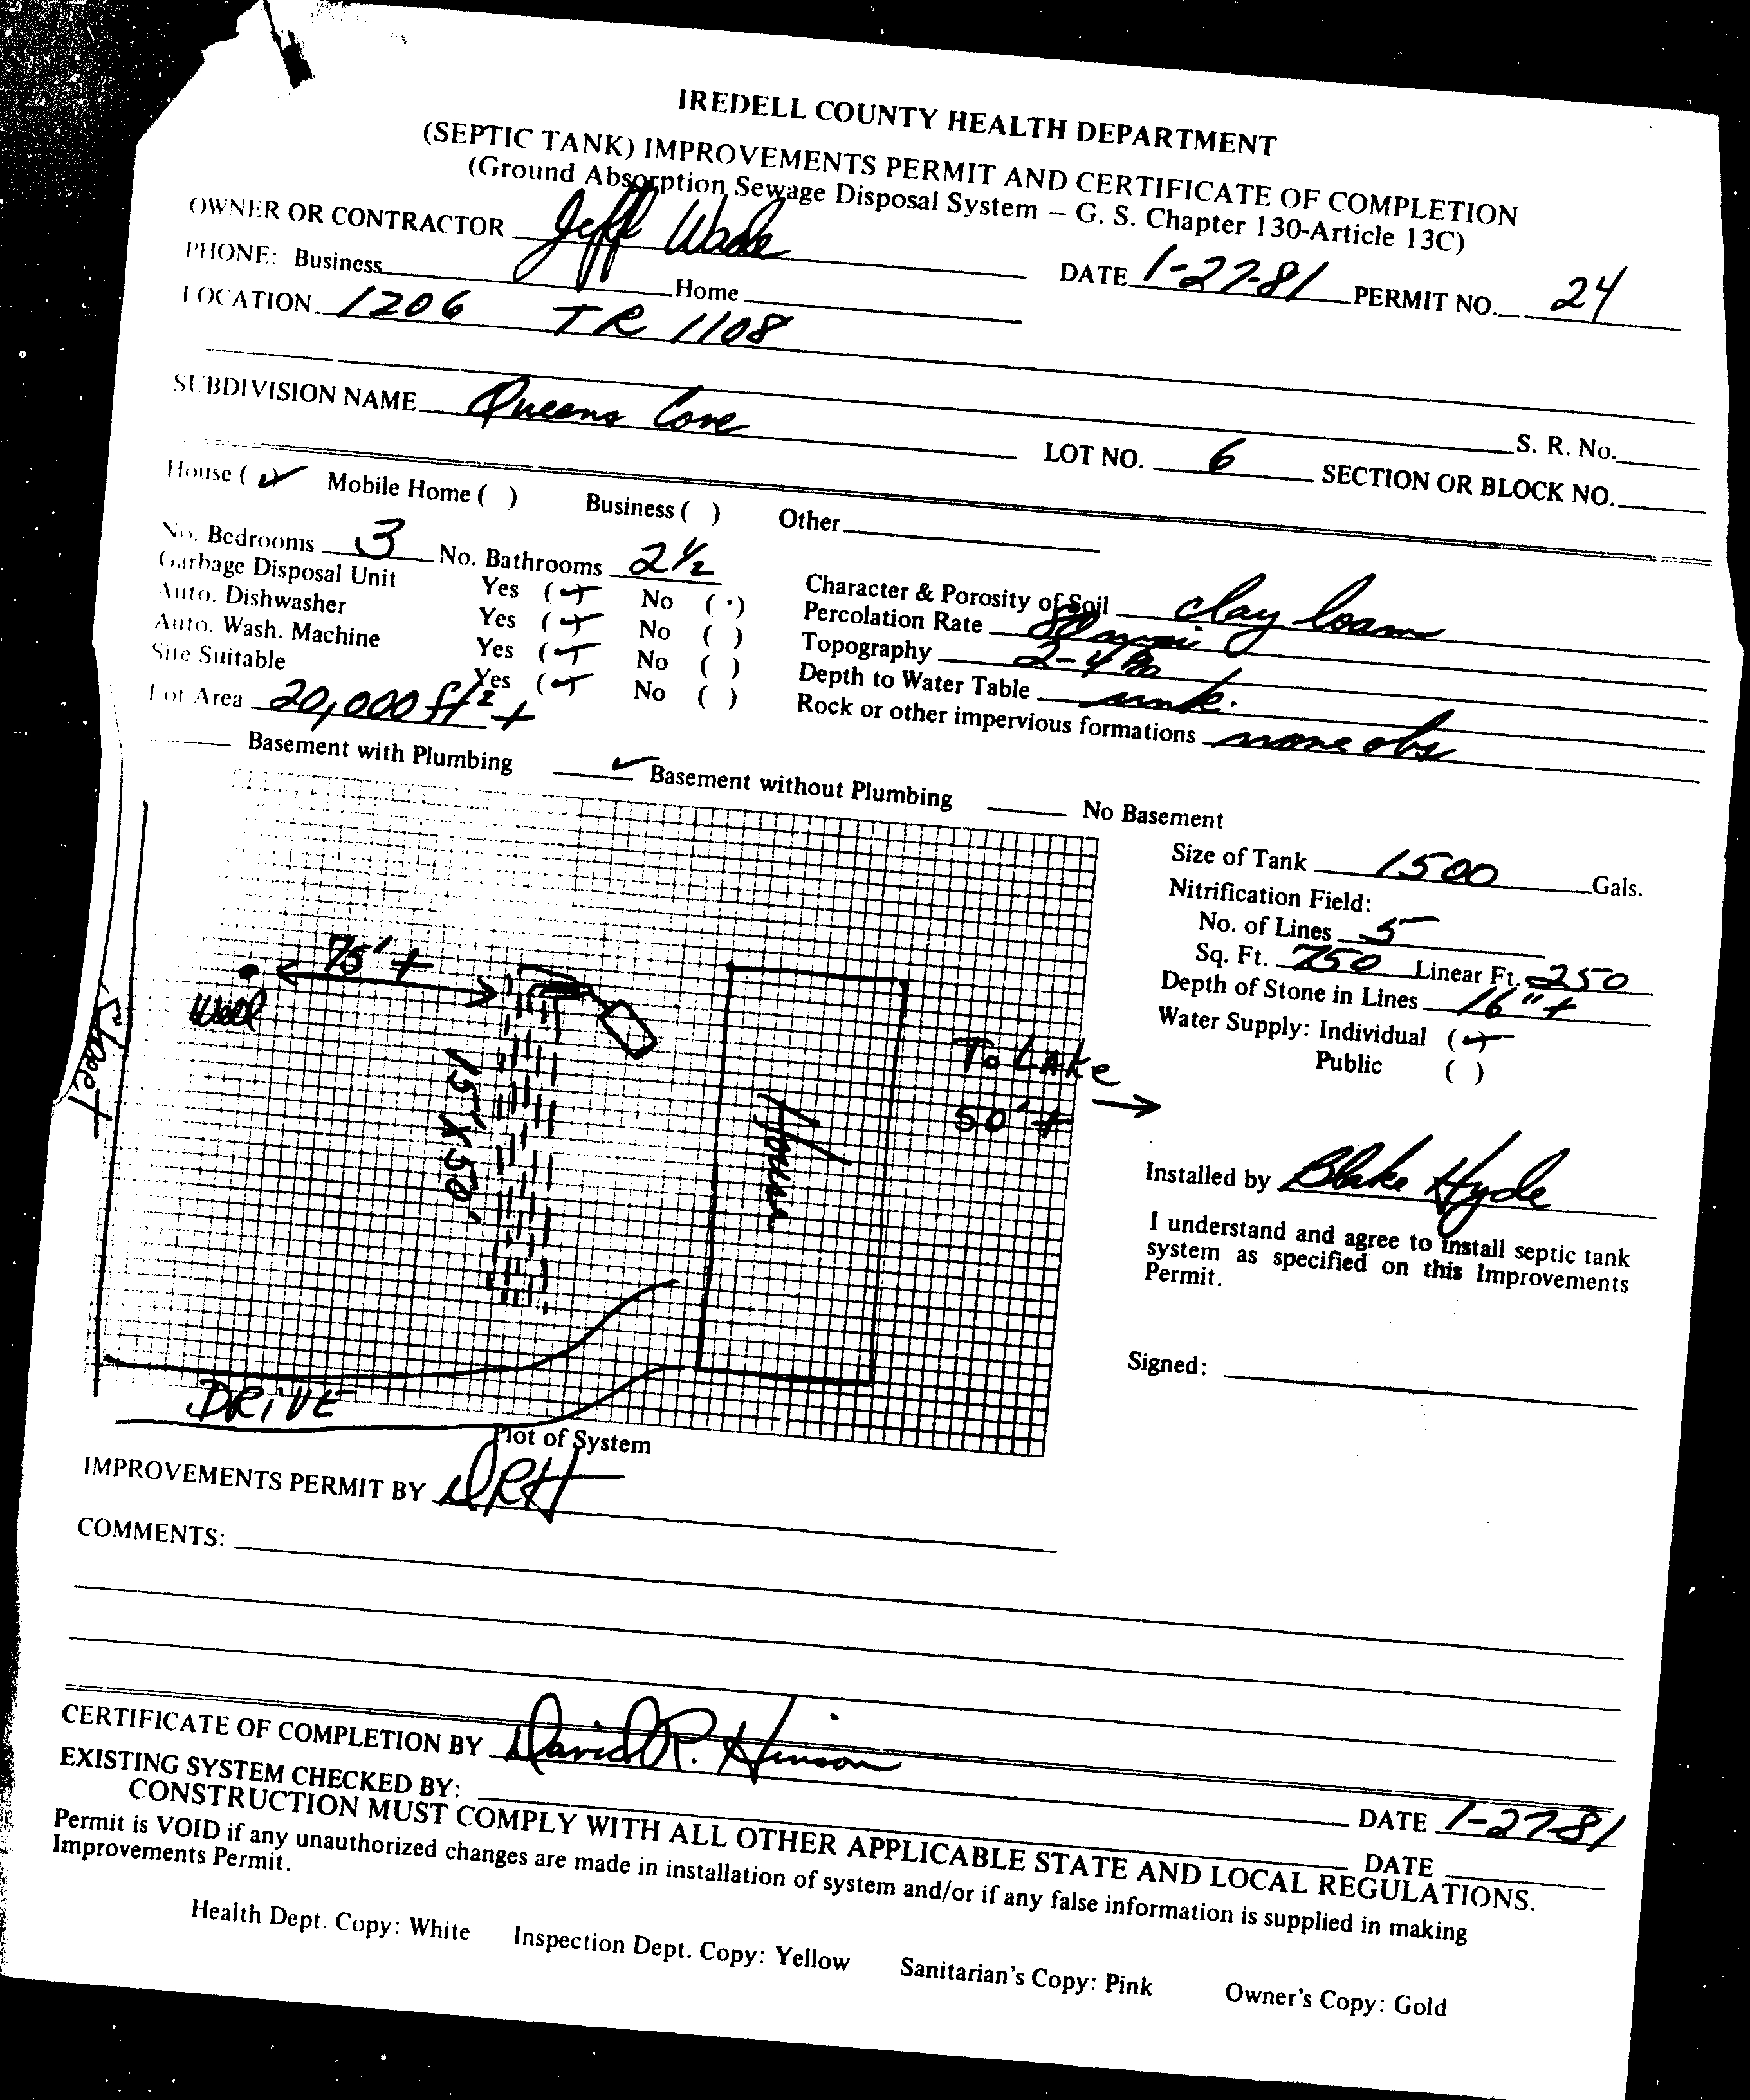 IREDELL COUNTY HEALTH DEPARTMENT
(SEPTIC TANK) IMPROVEMENTS PERMIT AND CERTIFICATE OF COMPLETION
(Ground Absorption Sewage Disposal System – G. S. Chapter 130-Article 13C)
OWNER OR CONTRACTOR Jeff Wade DATE 1-27-81 PERMIT NO. 24
PHONE: Business Home
LOCATION 1206 TR 1108
S. R. No.
SUBDIVISION NAME Queens Cove LOT NO. 6 SECTION OR BLOCK NO.
House (✓) Mobile Home ( ) Business ( ) Other
No. Bedrooms 3 No. Bathrooms 2½
Garbage Disposal Unit Yes (✓) No (·)
Auto. Dishwasher Yes (✓) No ( )
Auto. Wash. Machine Yes (✓) No ( )
Site Suitable Yes (✓) No ( )
Lot Area 20,000 ft² +
Character & Porosity of Soil clay loam
Percolation Rate 80
Topography 2-4%
Depth to Water Table unk.
Rock or other impervious formations none obs
Basement with Plumbing ✓ Basement without Plumbing No Basement
Size of Tank 1500 Gals.
Nitrification Field:
No. of Lines 5
Sq. Ft. 750 Linear Ft. 250
Depth of Stone in Lines 16" +
Water Supply: Individual (✓)
Public ( )
75' +
Well
15' X 50'
House
To LAke
50' +
DRiVE
Installed by Blake Hyde
I understand and agree to install septic tank
system as specified on this Improvements
Permit.
Signed:
Plot of System
IMPROVEMENTS PERMIT BY DRH
COMMENTS:
CERTIFICATE OF COMPLETION BY David R. Hinson DATE 1-27-81
EXISTING SYSTEM CHECKED BY: DATE
CONSTRUCTION MUST COMPLY WITH ALL OTHER APPLICABLE STATE AND LOCAL REGULATIONS.
Permit is VOID if any unauthorized changes are made in installation of system and/or if any false information is supplied in making
Improvements Permit.
Health Dept. Copy: White Inspection Dept. Copy: Yellow Sanitarian's Copy: Pink Owner's Copy: Gold